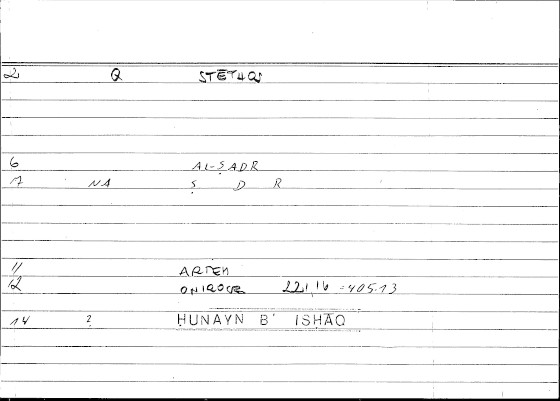 2 Q STĒTHOS
6 AL-ṢADR
7 NA Ṣ D R
11 ARTEM
12 ONIROCR 221,16 = 405.13
14 ? ḤUNAYN B' ISḤĀQ